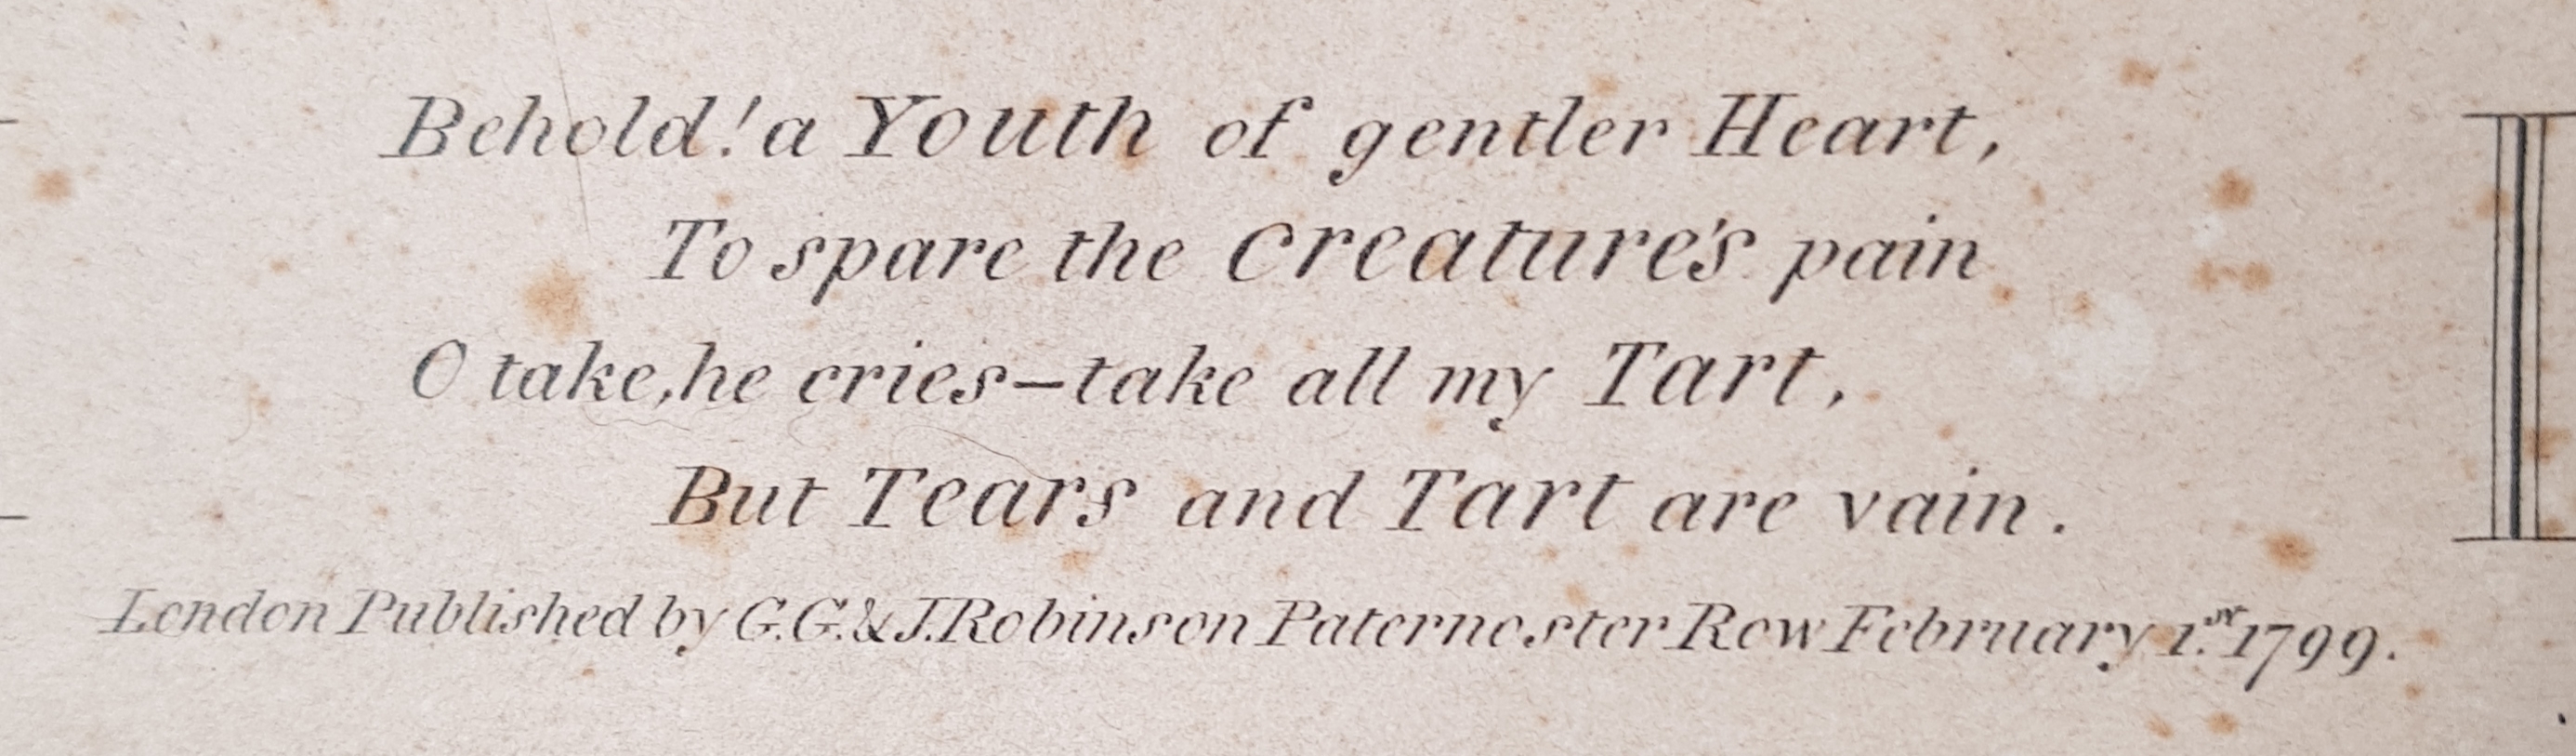 Behold! a Youth of gentler Heart,
To spare the Creature's pain
O take, he cries–take all my Tart,
But Tears and Tart are vain.
London Published by G.G. & J. Robinson Paternoster Row February 1.st 1799.